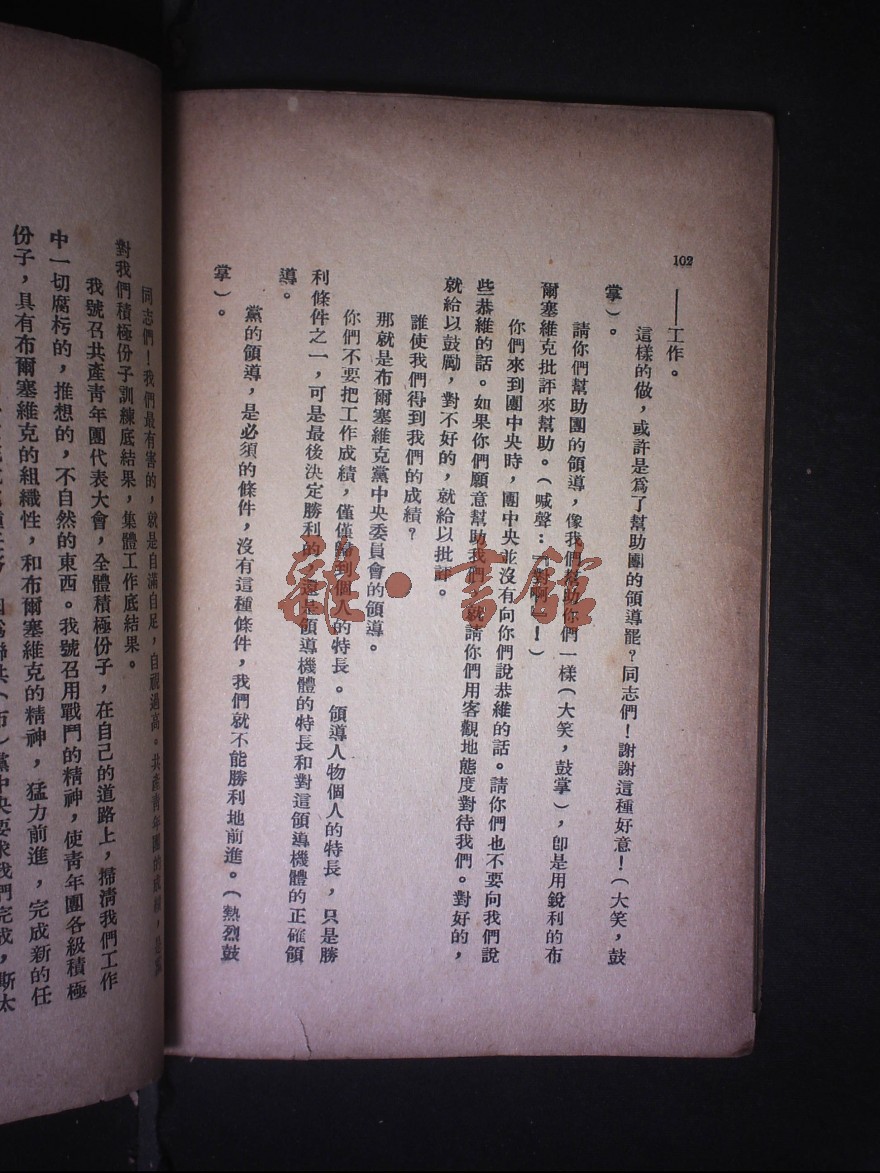 102
——工作。
這樣的做，或許是爲了幫助團的領導罷？同志們！謝謝這種好意！（大笑，鼓
掌）。
請你們幫助團的領導，像我們幫助你們一樣（大笑，鼓掌），卽是用銳利的布
爾塞維克批評來幫助。（喊聲：『對啊』！）
你們來到團中央時，團中央並沒有向你們說恭維的話。請你們也不要向我們說
些恭維的話。如果你們願意幫助我們，就請你們用客觀地態度對待我們。對好的，
就給以鼓勵，對不好的，就給以批評。
誰使我們得到我們的成績？
那就是布爾塞維克黨中央委員會的領導。
你們不要把工作成績，僅僅歸到個人的特長。領導人物個人的特長，只是勝
利條件之一，可是最後決定勝利的，還是領導機體的特長和對這領導機體的正確領
導。
黨的領導，是必須的條件，沒有這種條件，我們就不能勝利地前進。（熱烈鼓
掌）。
雜·書館
同志們！我們最有害的，就是自滿自足，自視過高。共產青年團的成績，是
對我們積極份子訓練底結果，集體工作底結果。
我號召共產青年團代表大會，全體積極份子，在自己的道路上，掃清我們工作
中一切腐朽的，推想的，不自然的東西。我號召用戰鬥的精神，使青年團各級積極
份子，具有布爾塞維克的組織性，和布爾塞維克的精神，猛力前進，完成新的任
黨中央要求我們完成，斯太